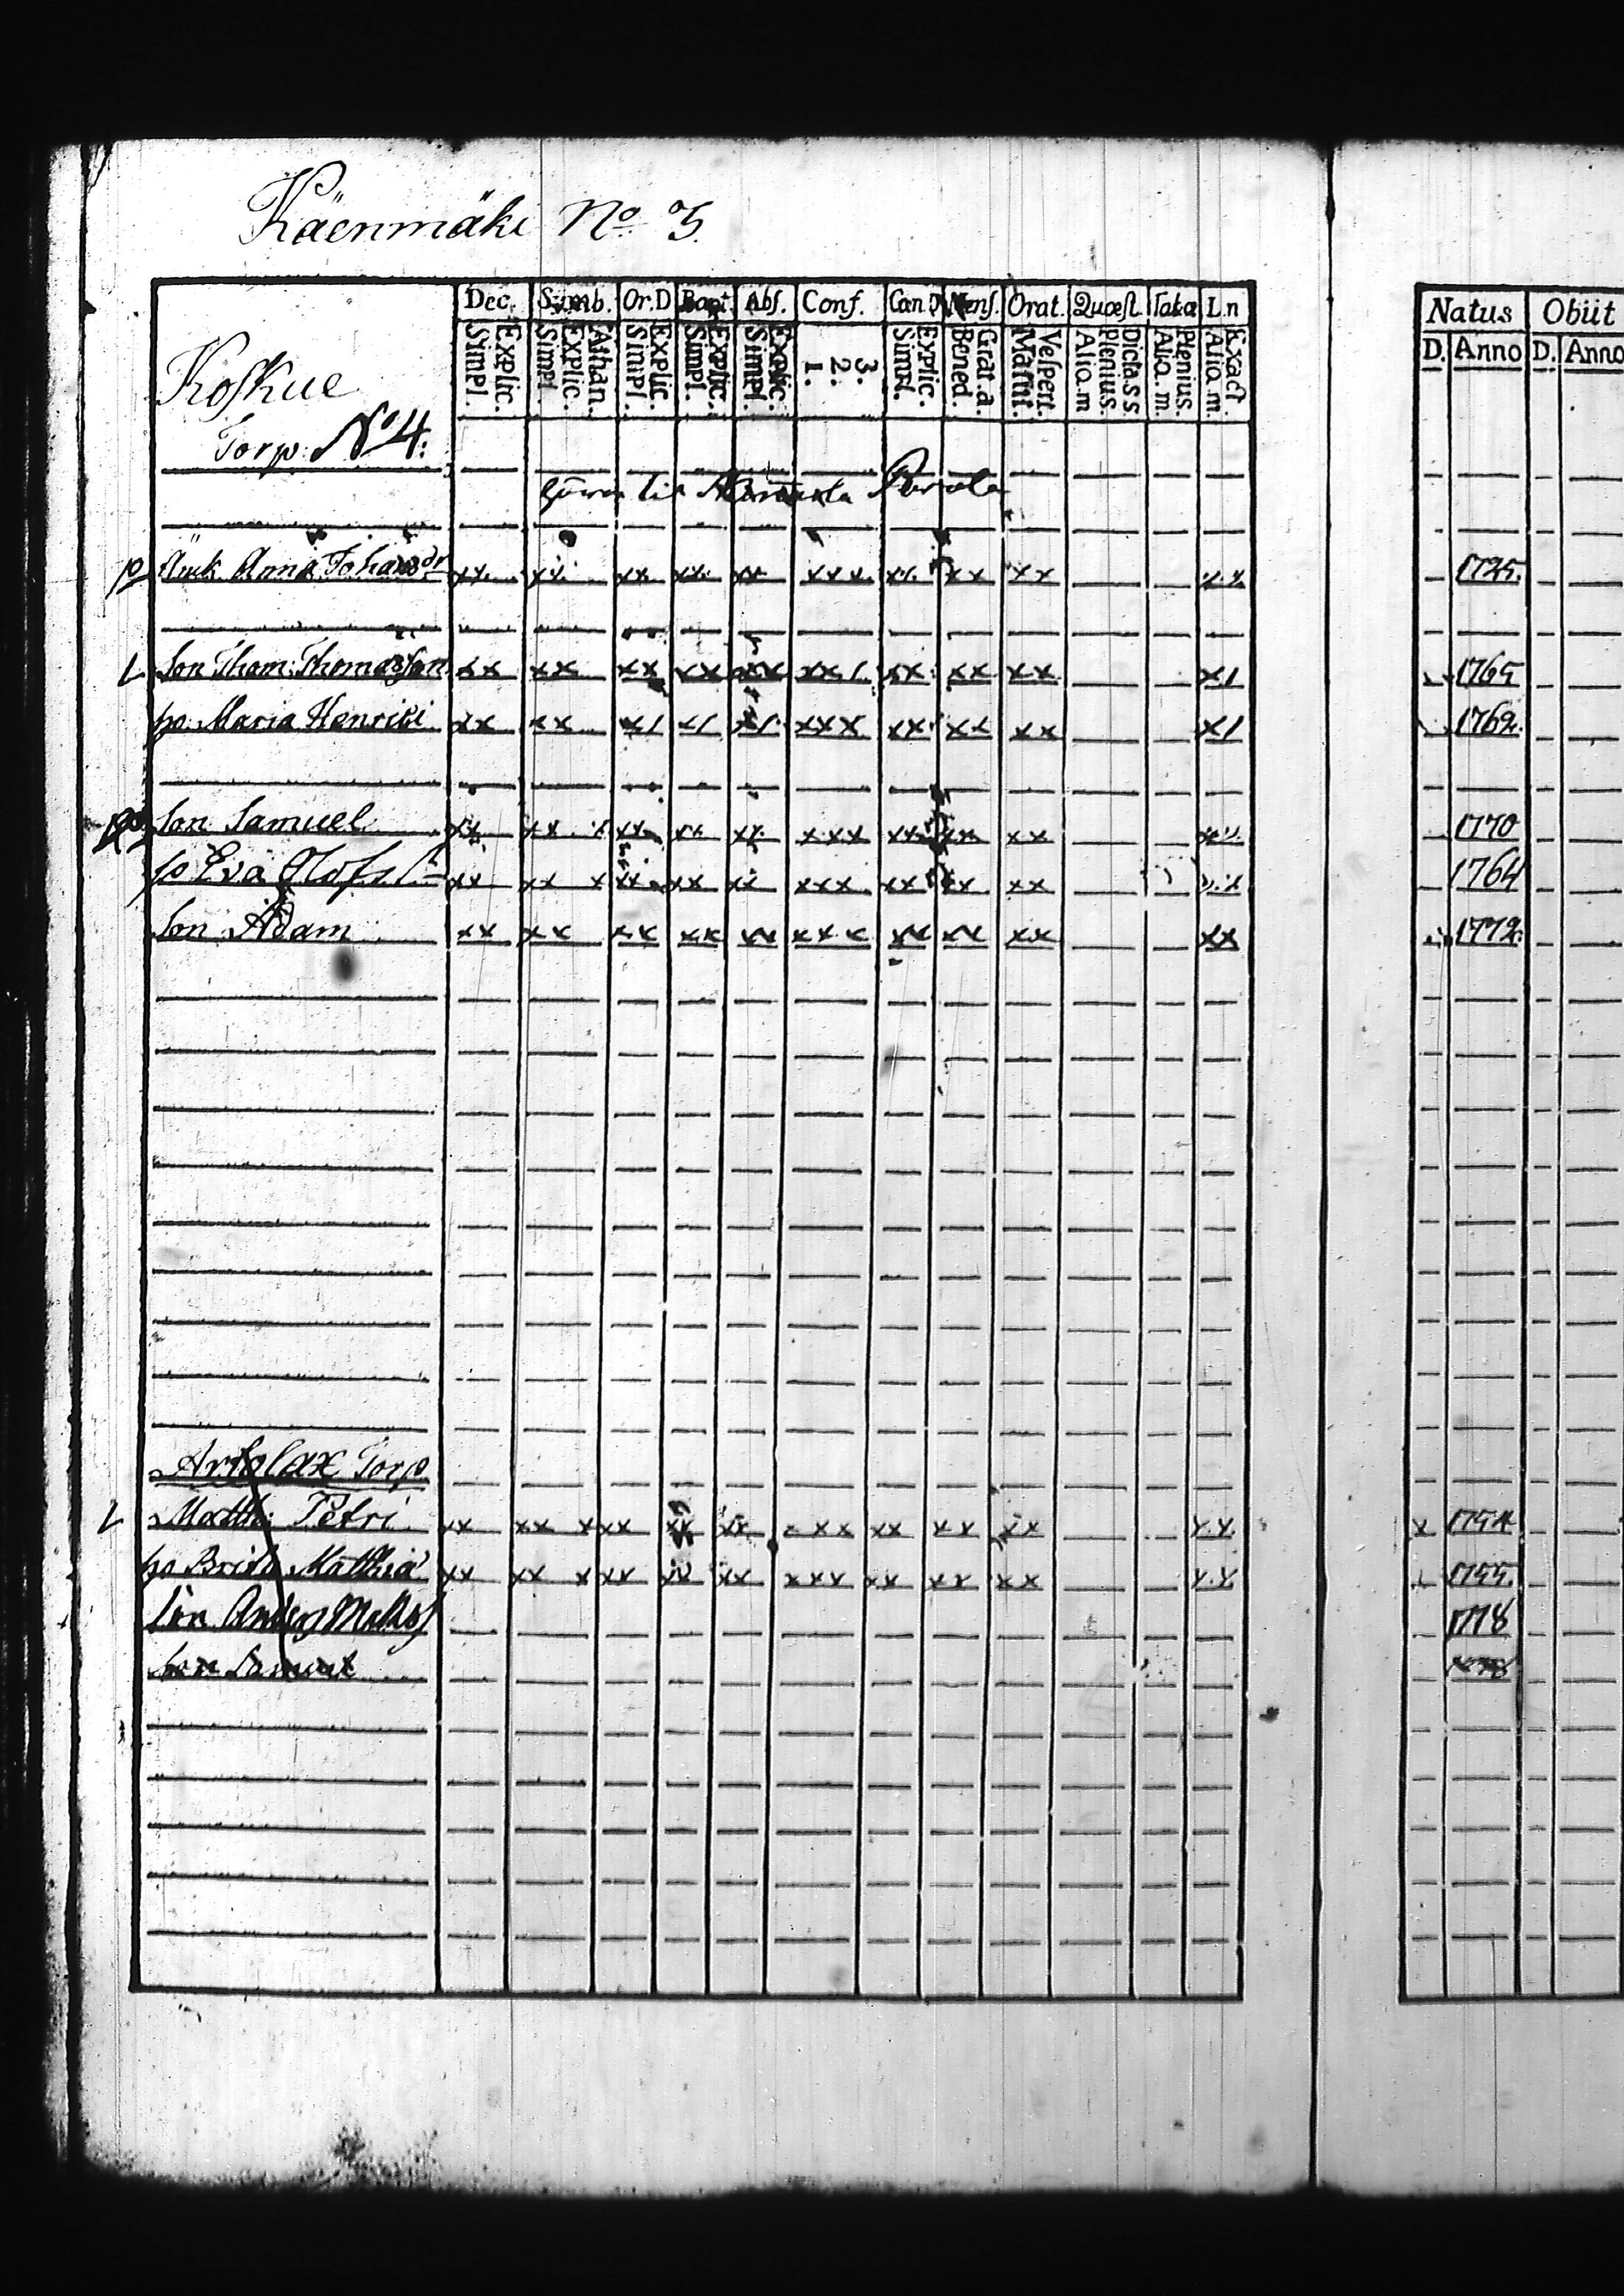 Käenmäki No 3.
Dec. Symb. Or.D Bapt. Abs. Conf. Can.D Mens. Orat. Quæst Tabæ L.n Natus Obiit
Explic. Simpl. Athan. Explic. Simpl. Explic. Simpl. Explic. Simpl. Explic. Simpl. 3. 2. 1. Explic. Simpl. Grat.a. Bened. Vespert. Matut. Dicta.s s Plenius. Alia.m Plenius. Alia.m. Exact. Alia.m. D. Anno D. Anno
Koskue
Torp No 4:
til
p Änk Anna Johansdr xx. xx. xx. xx. xx xxx. xx. xx xx x.x 1725.
L Son Thom: Thomasson xx xx xx xx xx xx/. xx xx xx x/ 1765
ho. Maria Henrici xx xx x/ x/ x/. xxx xx xx xx x/ 1762.
Son Samuel xx xx x xx xx xx xxx xx xx xx xx 1770
ho Eva Olofs xx xx x xx xx xx xxx xx xx xx x.x 1764
Son Adam xx xx xx xx xx xxx xx xx xx xx 1772.
Artolax Torp
L Matth: Petri xx xx x xx xx xx xxx xx xx xx x.x. x 1754
ho Brita Matthiæ xx xx x xx xx xx xxx xx xx xx x.x 1755.
Son Anders Matts 1778
Son Samuel